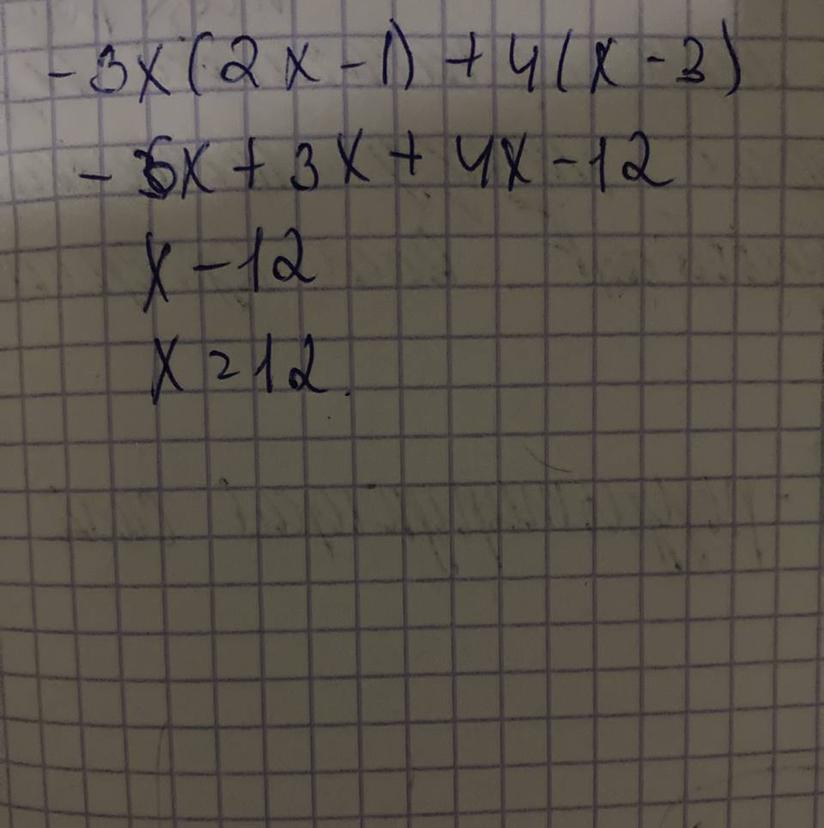 -3x(2x-1)+4(x-3)
-6x+3x+4x-12
x-12
x=12.